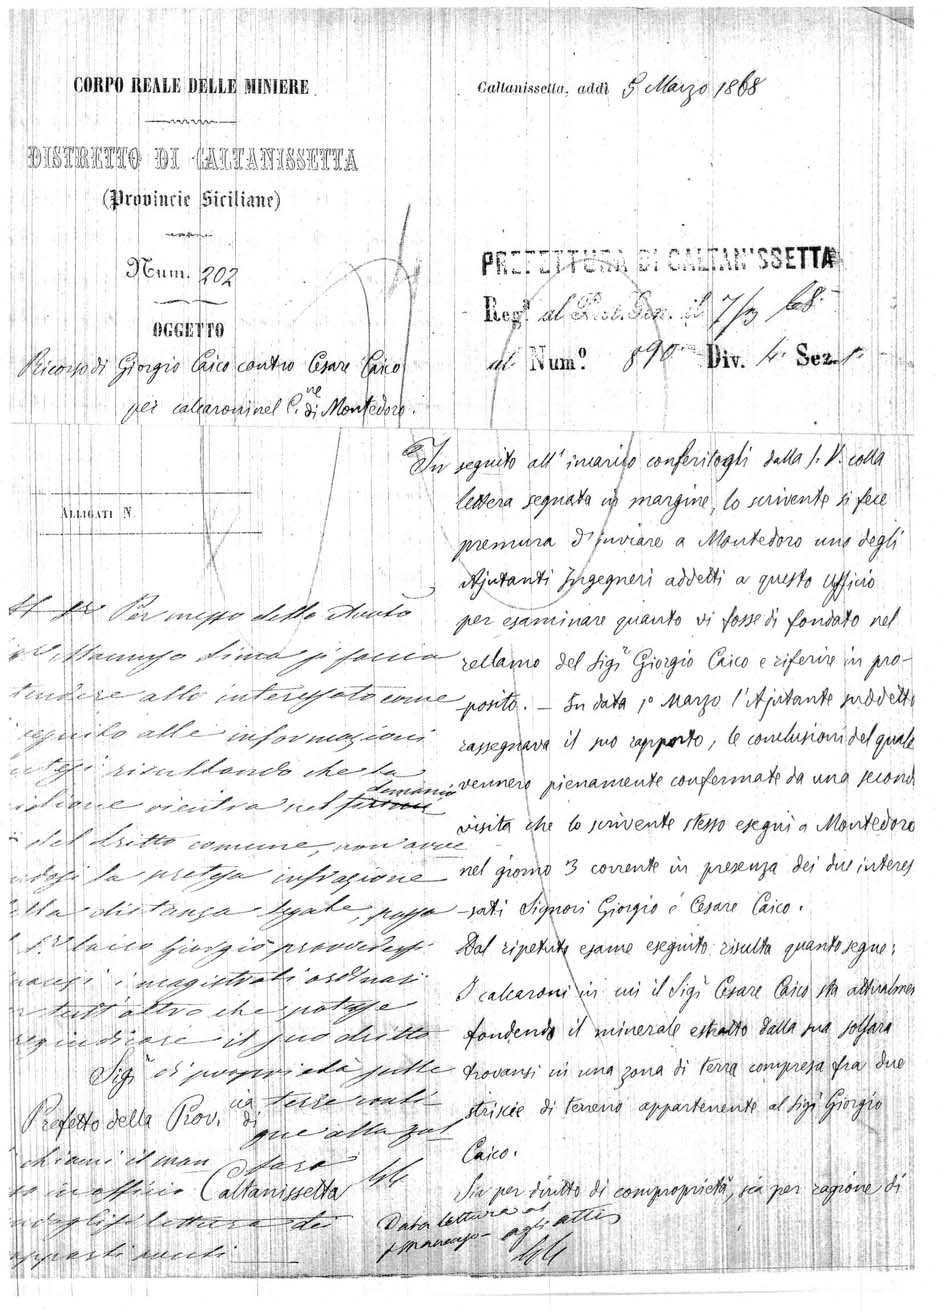 CORPO REALE DELLE MINIERE
DISTRETTO DI CALTANISSETTA
(Provincie Siciliane)
Num. 202
OGGETTO
Ricorso di Giorgio Caico contro Cesare Caico
per calcaroni nel C.ne di Montedoro.
Caltanissetta, addì 5 Marzo 1868
PREFETTURA DI CALTANISSETTA
Reg.a al Prot. Gen. il 7/3 68
al Num.o 890 Div. 4. Sez. 1.
ALLIGATI N.
In seguito all' incarico conferitogli dalla S. V. colla
lettera segnata in margine, lo scrivente si fece
premura d'inviare a Montedoro uno degli
Ajutanti Ingegneri addetti a questo Ufficio
per esaminare quanto vi fosse di fondato nel
reclamo del Sigr Giorgio Caico e riferire in pro-
-posito. – In data 1º Marzo l'Ajutante suddetto
rassegnava il suo rapporto, le conclusioni del quale
vennero pienamente confermate da una second
visita che lo scrivente stesso eseguì a Montedoro
nel giorno 3 corrente in presenza dei due interes
-sati Signori Giorgio e Cesare Caico.
Dal ripetuto esame eseguito risulta quanto segue:
I calcaroni in cui il Sigr Cesare Caico sta attualmen
fondendo il minerale estratto dalla sua solfara
trovansi in una zona di terra compresa fra due
striscie di terreno appartenente al Sigr Giorgio
Caico.
Sia per diritto di comproprietà, sia per ragione di
Per mezzo dello
Mancuso Sima si faccia
tendere allo interessato come
seguito alle informazioni
risultando che la
rientra nel demanio
del dritto comune, non
la pretesa infrazione
lla distanza legale, possa
Caico Giorgio provvedersi
i magistrati ordinari
tutt'altro che potesse
il suo dritto
di proprietà sulle
terre conti
gue alla zol
fara
Sigr
Prefetto della Prov.cia di
Caltanissetta
chiami il man
in officio
lettura dei
Data lettura al
Mancuso - agli atti